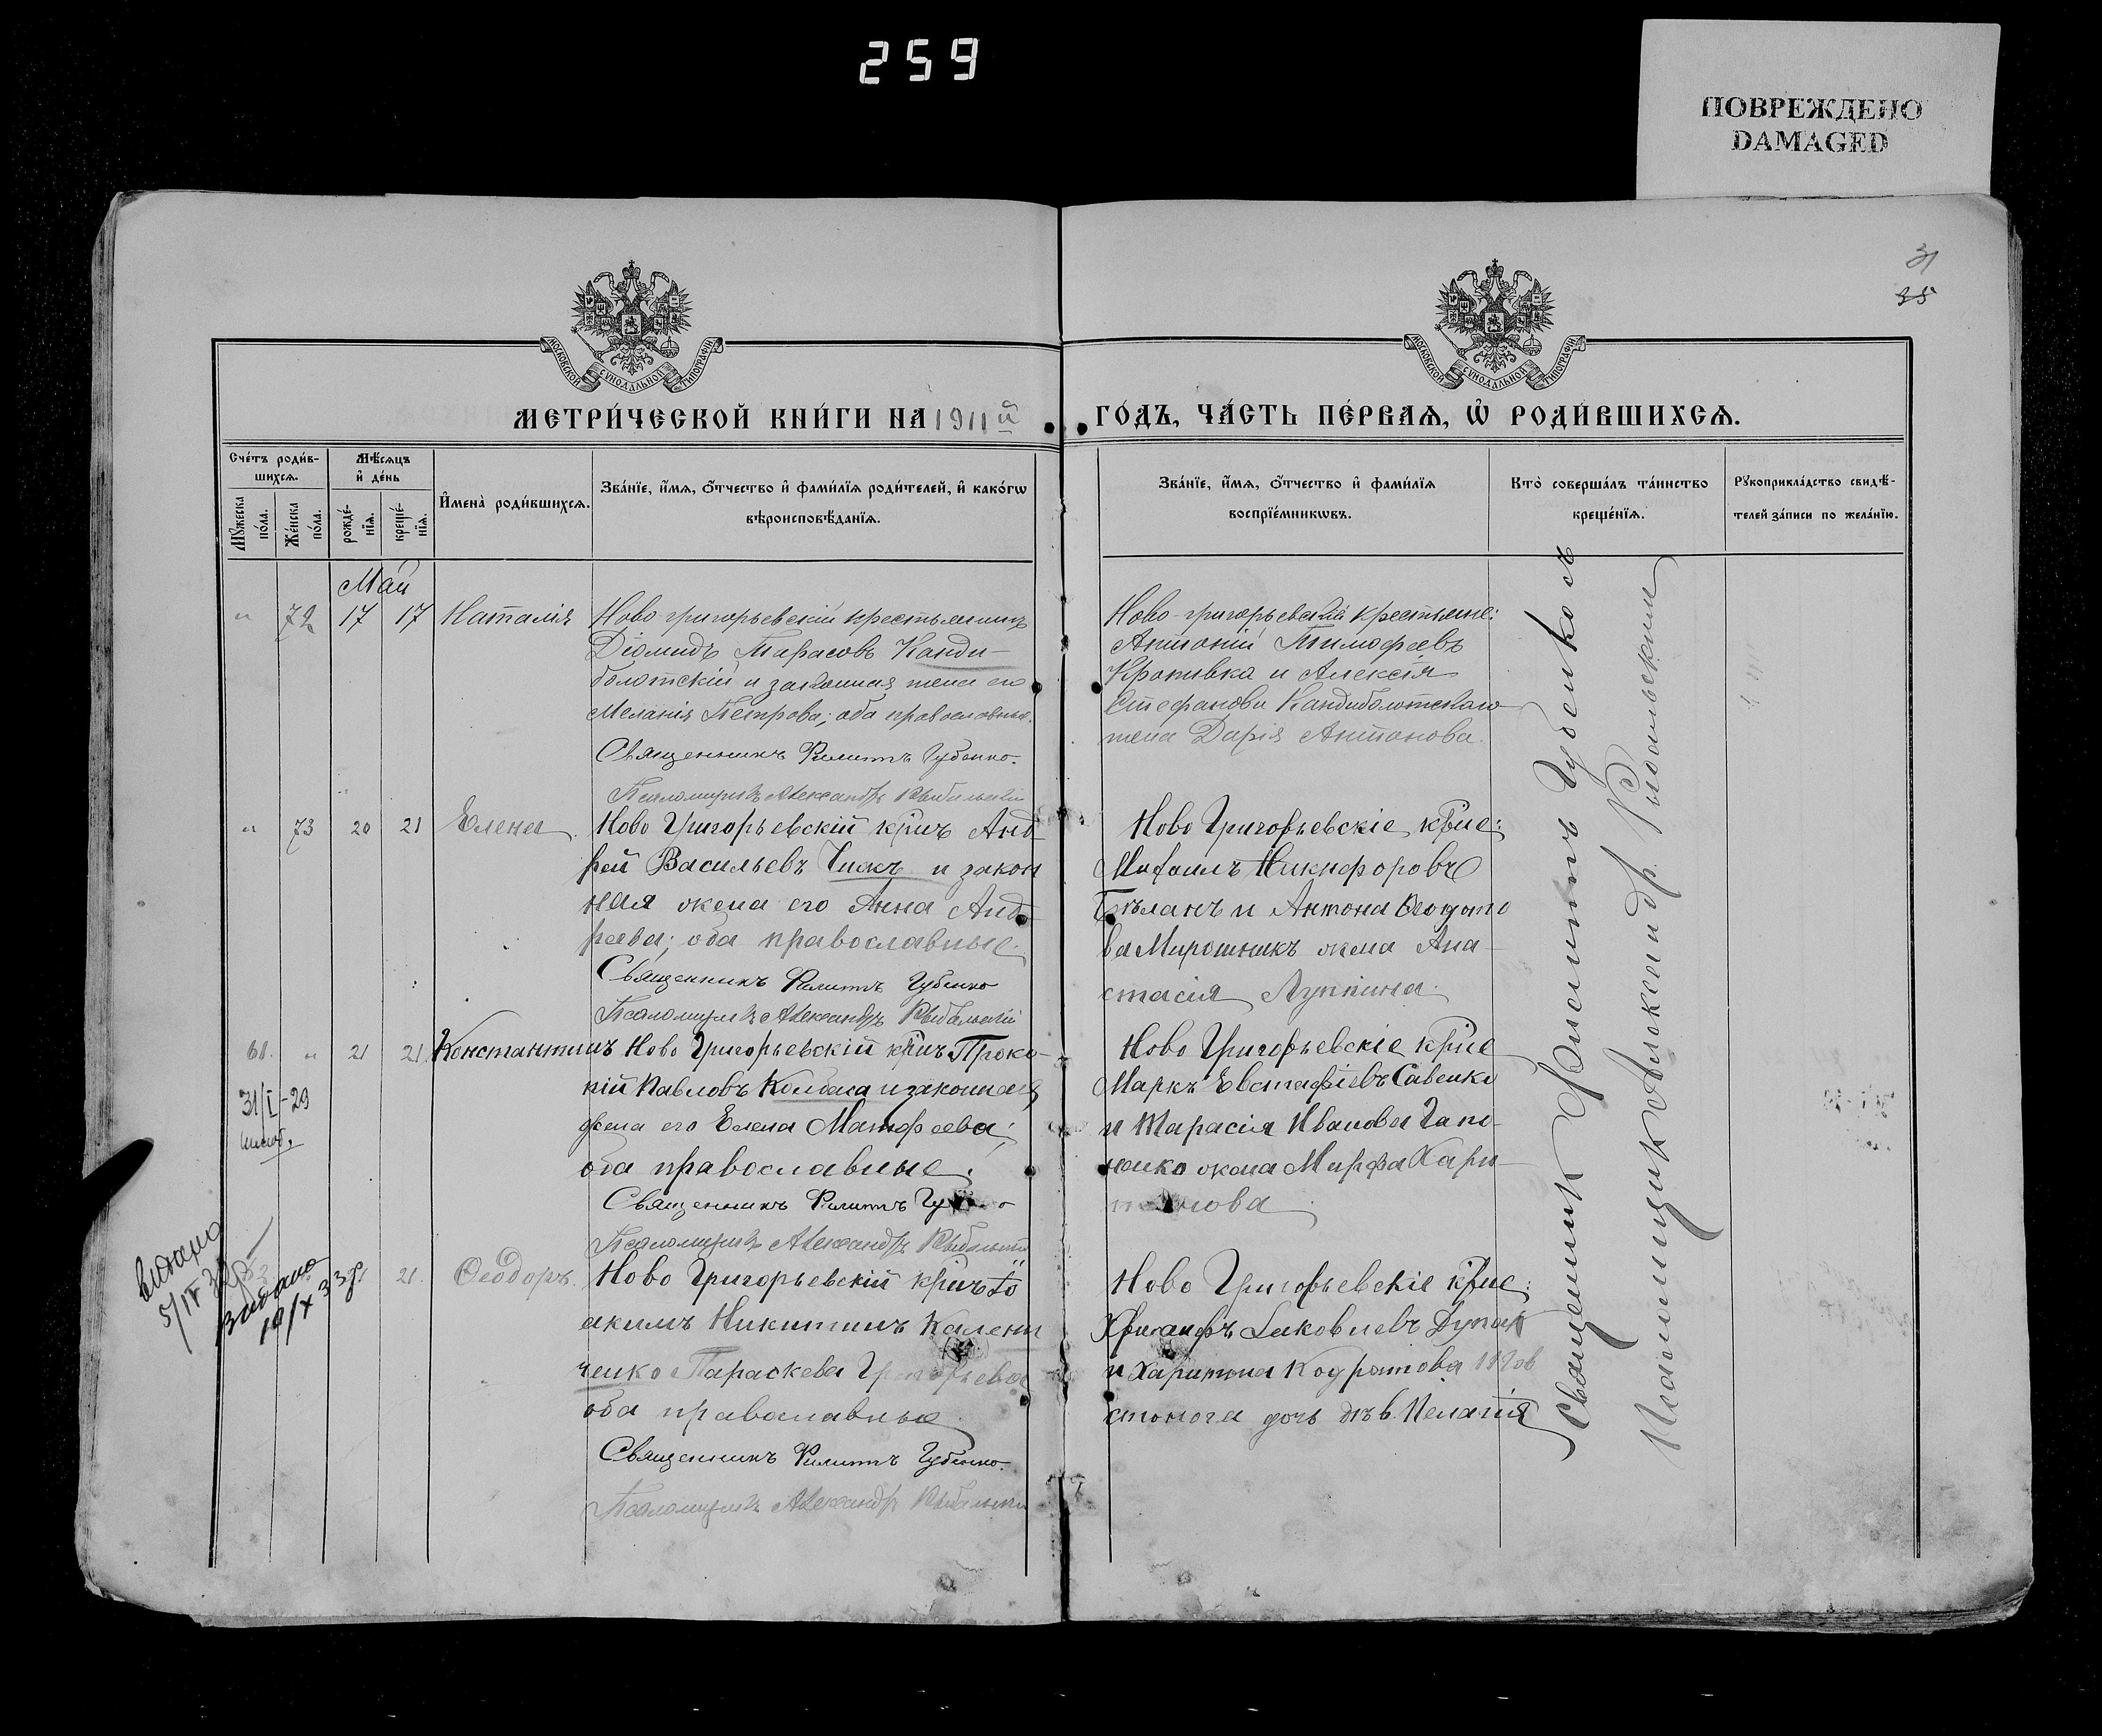 259
ПОВРЕЖДЕНО
DAMAGED
31
35
МОСКОВСКОЙ СѴНОДАЛЬНОЙ ТИПОГРАФІИ
МОСКОВСКОЙ СѴНОДАЛЬНОЙ ТИПОГРАФІИ
МЕТРИ́ЧЕСКОЙ КНИ́ГИ НА 1911й ГО́ДЪ, ЧА́СТЬ ПЕ́РВАѦ, Ѡ҆ РОДИ́ВШИХСѦ.
Сче́тъ роди́в-
шихсѧ.
Мꙋжеска по́ла.
Же́нска по́ла.
Мѣ́сѧцъ
и҆ де́нь
рожде́-
нїѧ.
креще́-
нїѧ.
И҆мена̀ роди́вшихсѧ.
Зва́нїе, и҆́мѧ, ѻ҆́тчество и҆ фами́лїѧ роди́телей, и҆ како́гѡ
вѣроисповѣ́данїѧ.
Зва́нїе, и҆́мѧ, ѻ҆́тчество и҆ фами́лїѧ
воспрїе́мникѡвъ.
Кто̀ соверша́лъ та́инство
креще́нїѧ.
Рꙋкоприкла́дство свидѣ́-
телей за́писи по жела́нїю.
Май
" 72 17 17 Наталія
Ново-григорьевскій крестьянинъ
Діомидъ Тарасовъ Канди-
болотскій и законная жена его
Меланія Петрова; оба православные.
Священникъ Филиппъ Губенко.
Псаломщикъ Александръ Рыбальскій
Ново-григорьевскіе крестьяне:
Антоній Тимофеевъ
Кропивка и Алексія
Стефанова Кандиболотскаго
жена Дарія Антонова.
" 73 20 21 Елена
Ново Григорьевскій кр-нъ Анд-
рей Васильевъ Чижъ и закон
ная жена его Анна Анд-
реева; оба православные.
Священникъ Филиппъ Губенко
Псаломщикъ Александръ Рыбальскій
Ново Григорьевскіе кр-не:
Михаилъ Никифоровъ
Бѣланъ и Антона Ѳедото
ва Мирошникъ жена Ана-
стасія Луппина.
61. " 21 21 Константинъ
Ново Григорьевскій кр-нъ Проко-
пій Павловъ Колбаса и законная
жена его Елена Матфеева;
оба православные.
Священникъ Филиппъ Губенко
Псаломщикъ Александръ Рыбальскій
Ново Григорьевскіе кр-не
Маркъ Евстафіевъ Савенко
и Тарасія Иванова Гапо-
ненко жена Марфа Хари-
тонова
31/I-29
видано
5/IV 32р
Видано
19/X 33р.
21. Ѳеодоръ.
Ново Григорьевскій кр-нъ Іо
акимъ Никитинъ Калени
ченко Параскева Григорьева
оба православные.
Священникъ Филиппъ Губенко.
Псаломщикъ Александръ Рыбальскій
Ново Григорьевскіе кр-не:
Хрисанфъ Іаковлевъ
и Харитона Кодратова
стонога дочь дѣв. Пелагія
Священникъ Филиппъ Губенко
Псаломщикъ Александръ Рыбальскій